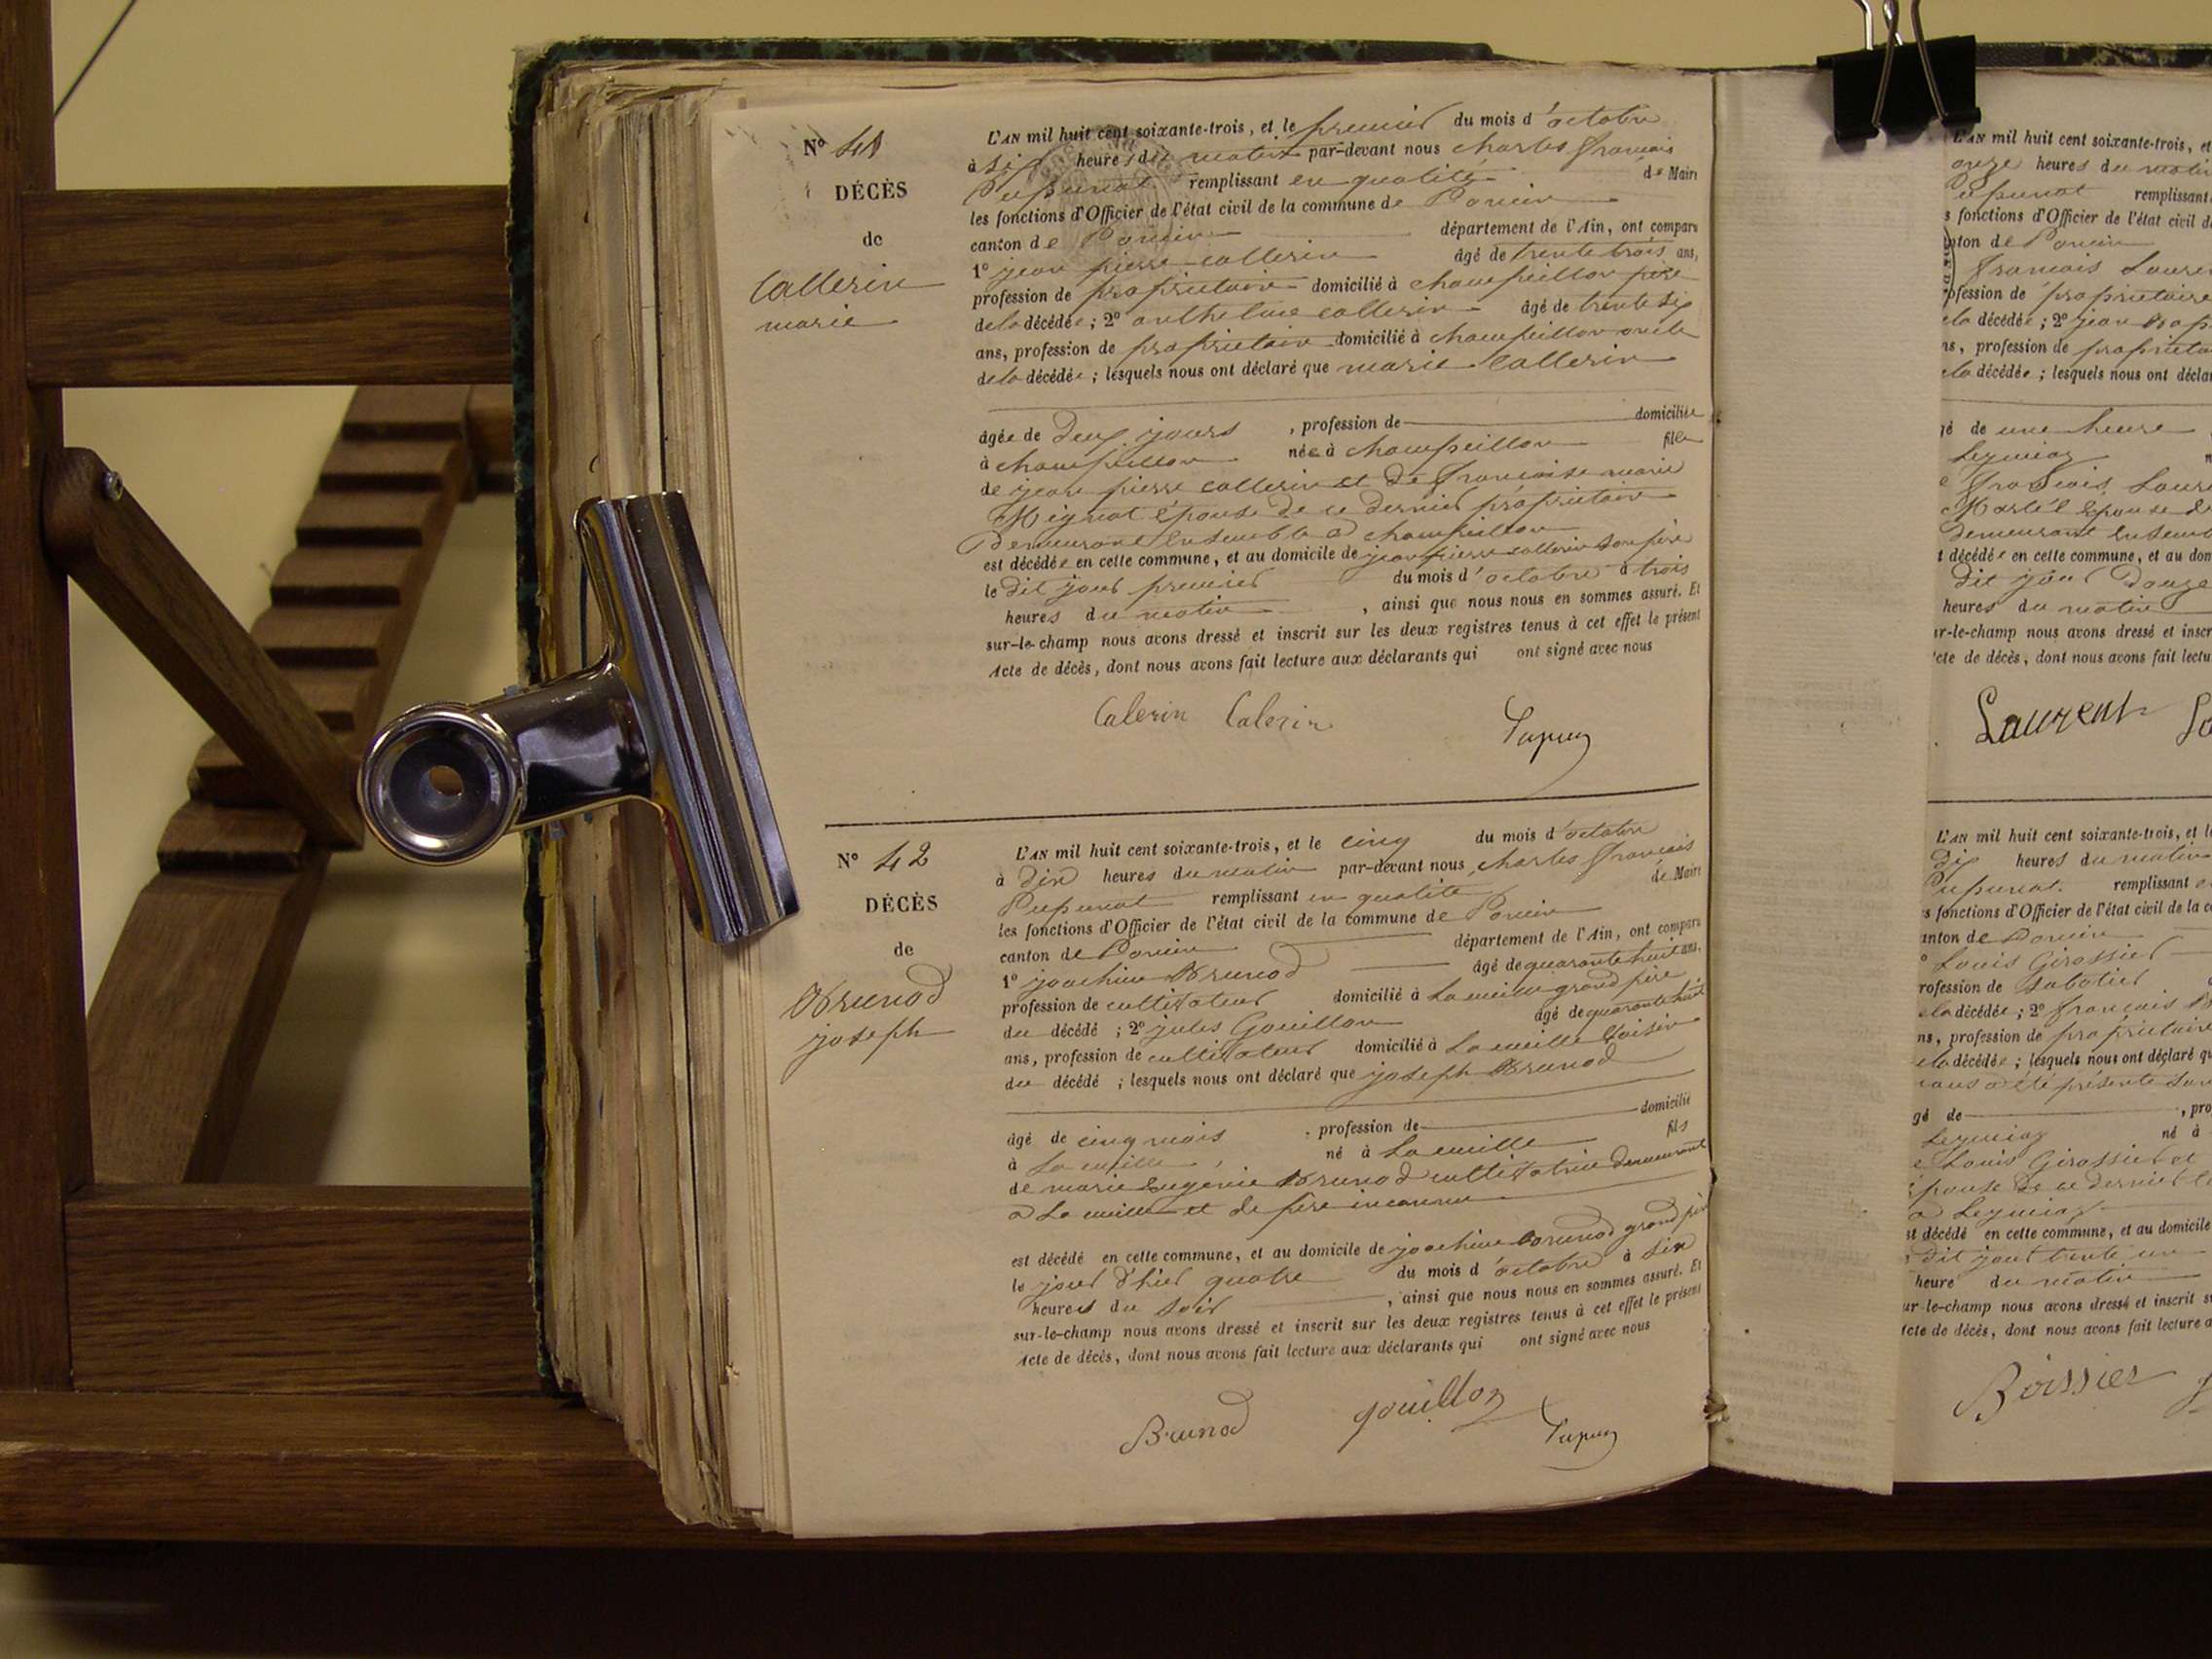 Nº 41
DÉCÈS
de
Callerin
marie
L'AN mil huit cent soixante-trois, et le premier du mois d'octobre
à six heures du matin par-devant nous charles françois
Pupunat remplissant en qualité de Maire
les fonctions d'Officier de l'état civil de la commune de Poncin
canton de Poncin département de l'Ain, ont comparu
1º jean pierre callerin âgé de trente trois ans,
profession de propriétaire domicilié à champeillon père
de la décédée; 2º anthelme callerin âgé de trente six
ans, profession de propriétaire domicilié à champeillon oncle
de la décédée; lesquels nous ont déclaré que marie Callerin
âgée de deux jours, profession de domiciliée
à champeillon née à champeillon fille
de jean pierre callerin et de françoise marie
Mignat épouse de ce dernier propriétaire
Demeurant ensemble à champeillon
est décédée en cette commune, et au domicile de jean pierre callerin son père
le dit jour premier du mois d'octobre à trois
heures du matin, ainsi que nous nous en sommes assuré. Et
sur-le-champ nous avons dressé et inscrit sur les deux registres tenus à cet effet le présent
Acte de décès, dont nous avons fait lecture aux déclarants qui ont signé avec nous
Calerin Calerin
Nº 42
DÉCÈS
de
Brunod
joseph
L'AN mil huit cent soixante-trois, et le cinq du mois d'octobre
à dix heures du matin par-devant nous charles françois
Pupunat remplissant en qualité de Maire
les fonctions d'Officier de l'état civil de la commune de Poncin
canton de Poncin département de l'Ain, ont comparu
1º joachim Brunod âgé de quarante huit ans,
profession de cultivateur domicilié à La grand père
du décédé; 2º jules Gouillon âgé de quarante huit
ans, profession de cultivateur domicilié à La voisin
du décédé; lesquels nous ont déclaré que joseph Brunod
âgé de cinq mois, profession de domicilié
à La né à La fils
de marie Eugénie Brunod cultivatrice demeurant
à La et de père inconnu
est décédé en cette commune, et au domicile de joachim brunod grand père
le jour d'hier quatre du mois d'octobre à six
heures du soir, ainsi que nous nous en sommes assuré. Et
sur-le-champ nous avons dressé et inscrit sur les deux registres tenus à cet effet le présent
Acte de décès, dont nous avons fait lecture aux déclarants qui ont signé avec nous
Brunod gouillon
L'AN mil huit cent soixante-trois, et
onze heures du matin
Pupunat remplissant
s fonctions d'Officier de l'état civil de
nton de Poncin
françois Lauren
ofession de propriétaire
e la décédée; 2º jean
ns, profession de propriéta
e la décédée; lesquels nous ont décla
gé de une heure
Leymiaz
e françois Laure
épouse de
demeurant ensem
t décédée en cette commune, et au dom
dit jour douze
heures du matin
ur-le-champ nous avons dressé et inscr
Acte de décès, dont nous avons fait lectu
Laurent
L'AN mil huit cent soixante-trois, et l
dix heures du matin
Pupunat. remplissant
s fonctions d'Officier de l'état civil de la co
anton de Poncin
º Louis Girossier
rofession de sabotier
e la décédée; 2º françois
ns, profession de propriétaire
e la décédée; lesquels nous ont déclaré qu
nous a été présenté san
gé de, pro
Leymiaz né à
e Louis Girossier et
épouse de ce dernier
à Leymiaz
st décédé en cette commune, et au domicile
dit jour trente un
heure du matin
ur-le-champ nous avons dressé et inscrit s
Acte de décès, dont nous avons fait lecture a
Boissier